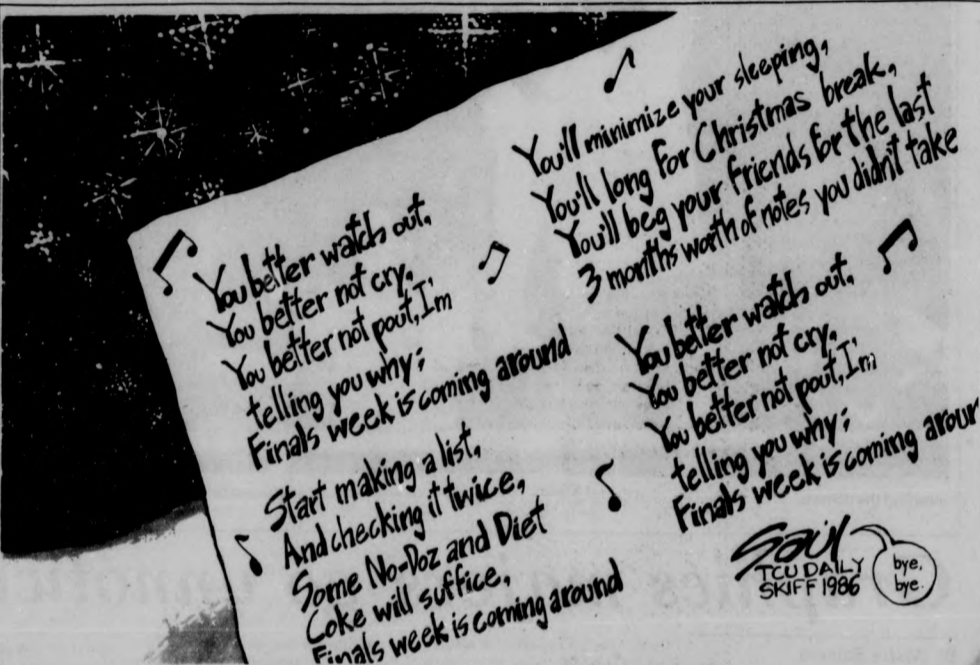 You better watch out,
You better not cry,
You better not pout, I'm
telling you why;
Finals week is coming around
Start making a list,
And checking it twice,
Some No-Doz and Diet
Coke will suffice,
Finals week is coming around
You'll minimize your sleeping,
You'll long for Christmas break,
You'll beg your friends for the last
3 months worth of notes you didn't take
You better watch out,
You better not cry,
You better not pout, I'm
telling you why;
Finals week is coming aroun
Saul
TCU DAILY
SKIFF 1986
bye,
bye.